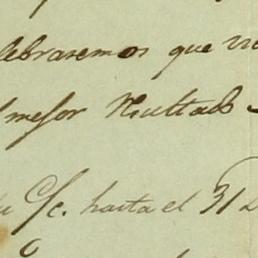 lebrasemos que
mejor Resultado
C/c. hasta el 31